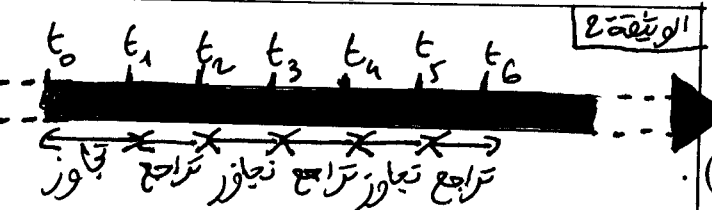 الوثيقة 2
t₀ t₁ t₂ t₃ t₄ t₅ t₆
تجاوز تراجع تجاوز تراجع تجاوز تراجع